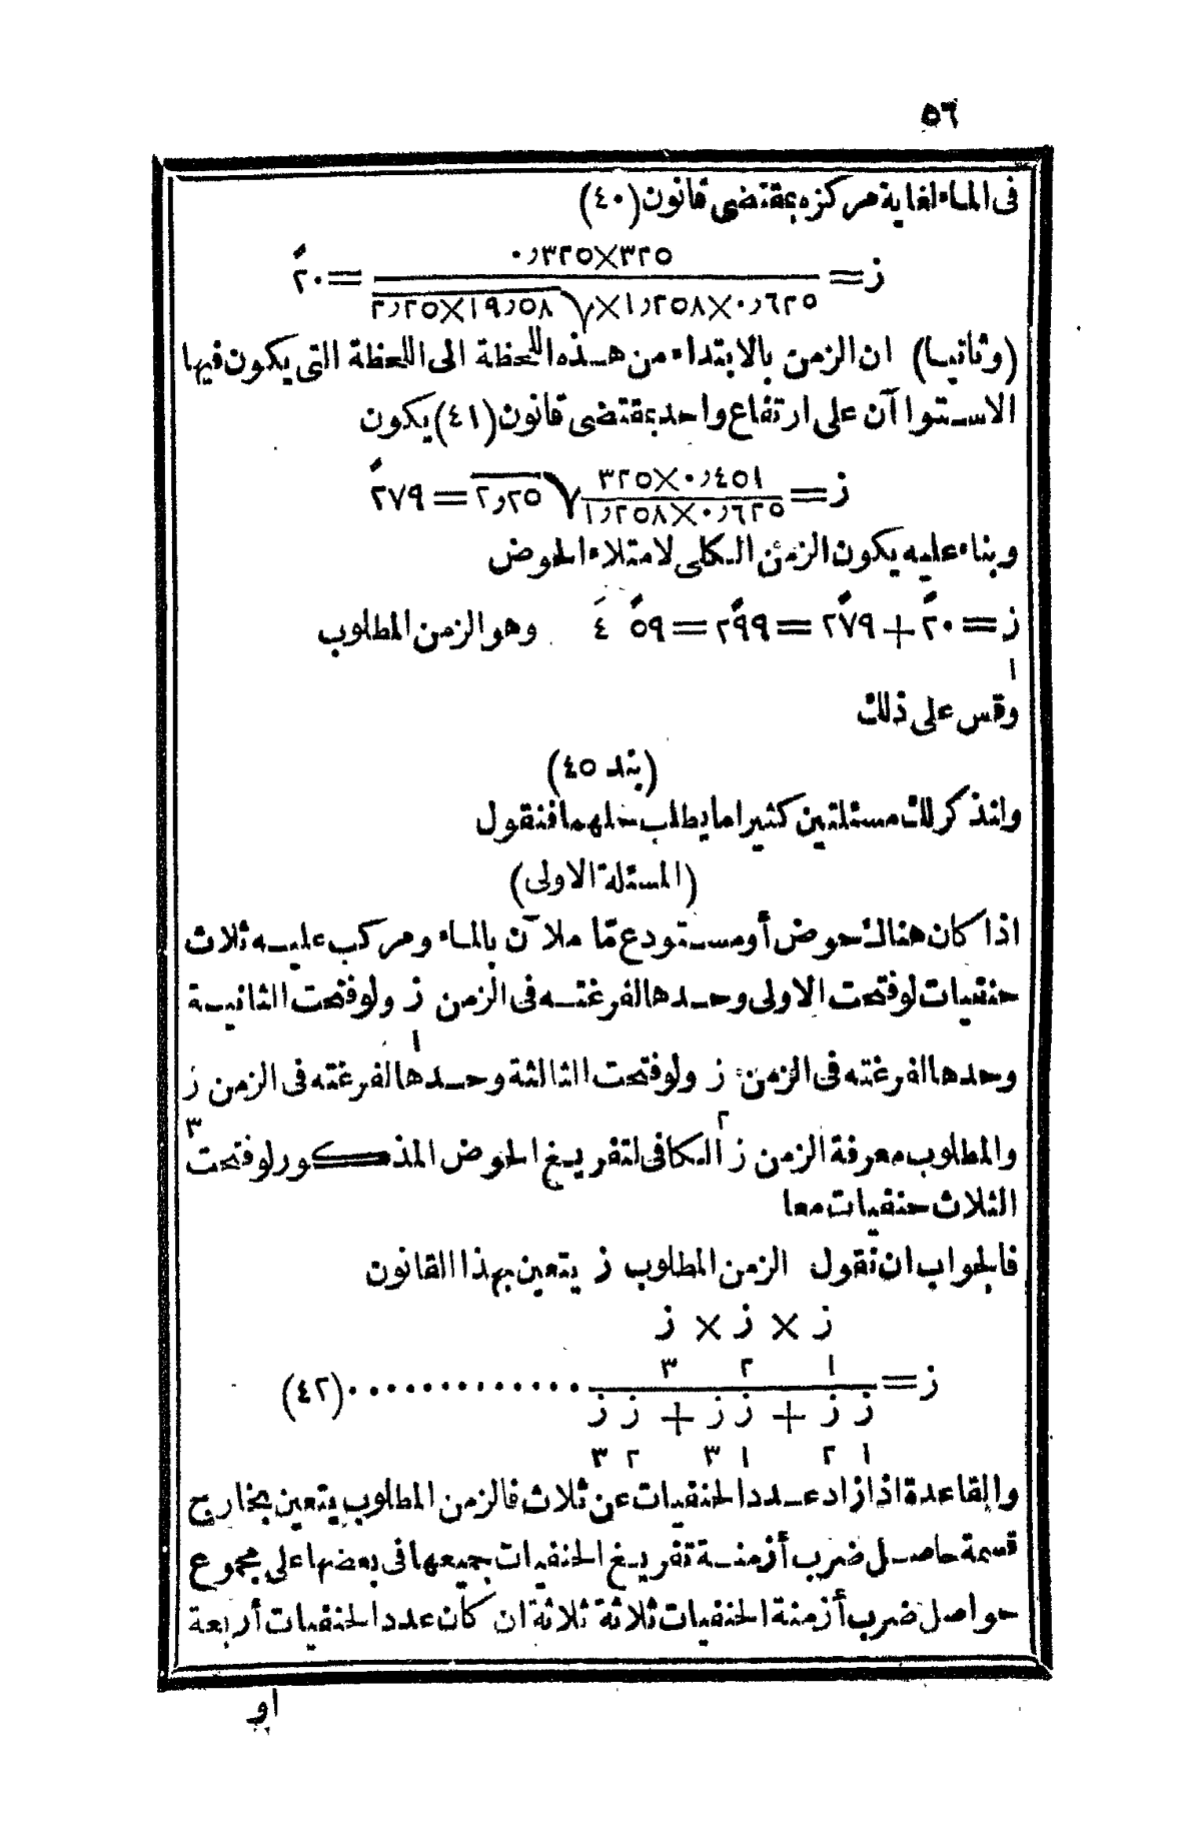 ٥٦
فى الماء لغاية مركزه بمقتضى قانون (٤٠)
ز = ٠٫٣٢٥×٣٢٥ / ٠٫٦٢٥×١٫٢٥٨×√١٩٫٥٨×٢٫٢٥ = ٢٠ً
(وثانيا) ان الزمن بالابتداء من هذه اللحظة الى اللحظة التى يكون فيها
الاستوا آن على ارتفاع واحد بمقتضى قانون (٤١) يكون
ز = ٠٫٤٥١×٣٢٥ / ٠٫٦٢٥×١٫٢٥٨ √٢٫٢٥ = ٢٧٩ً
وبناء عليه يكون الزمن الكلى لامتلاء الحوض
ز = ٢٠ً + ٢٧٩ً = ٢٩٩ً = ٥٩ً ٤َ وهو الزمن المطلوب
١
وقس على ذلك
(بند ٤٥)
ولنذكر لك مسئلتين كثيرا ما يطلب حلهما فنقول
(المسئلة الاولى)
اذا كان هناك حوض أو مستودع مّا ملآن بالماء ومركب عليه ثلاث
حنفيات لو فتحت الاولى وحدها لفرغته فى الزمن ز ولو فتحت الثانية
١
وحدها لفرغته فى الزمن ز ولو فتحت الثالثة وحدها لفرغته فى الزمن ز
٢ ٣
والمطلوب معرفة الزمن ز الكافى لتفريغ الحوض المذكور لو فتحت
الثلاث حنفيات معا
فالجواب ان نقول الزمن المطلوب ز يتعين بهذا القانون
ز × ز × ز
١ ٢ ٣
ز = ــــــــــ ............. (٤٢)
ز ز + ز ز + ز ز
١ ٢ ١ ٣ ٢ ٣
والقاعدة اذا زاد عدد الحنفيات عن ثلاث فالزمن المطلوب يتعين بخارج
قسمة حاصل ضرب أزمنة تفريغ الحنفيات جميعها فى بعضها على مجموع
حواصل ضرب أزمنة الحنفيات ثلاثة ثلاثة ان كان عدد الحنفيات أربعة
او